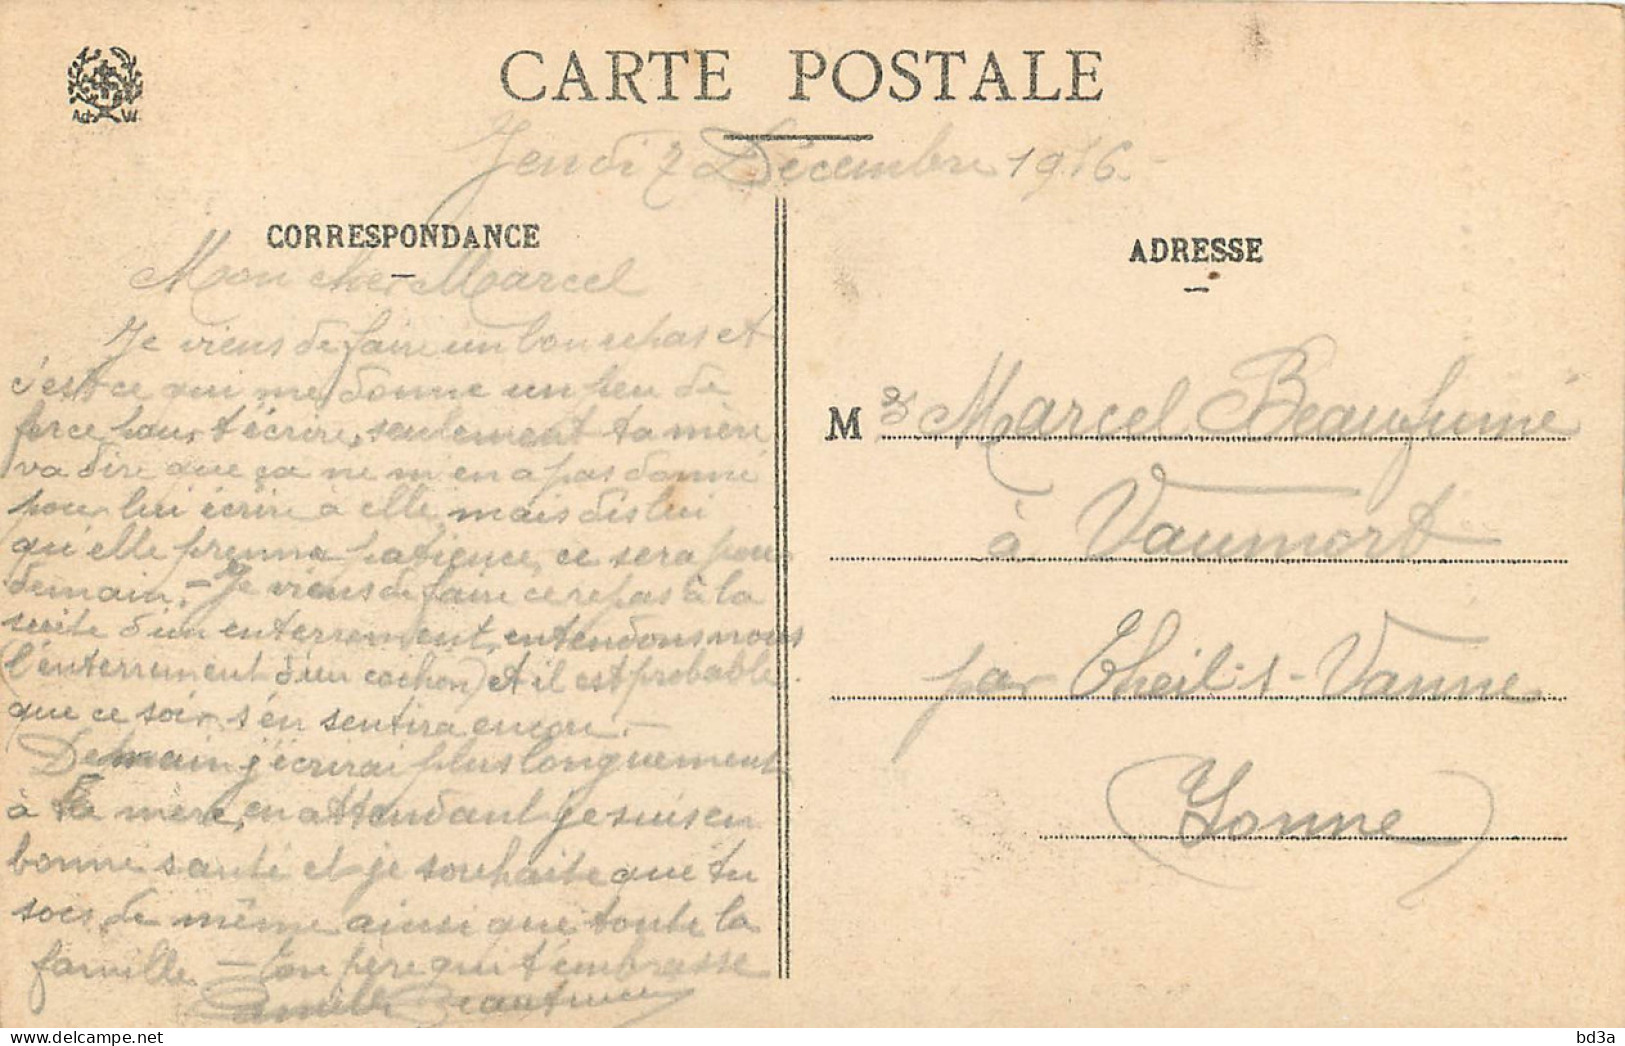 CARTE POSTALE
Jeudi 7 Décembre 1916
CORRESPONDANCE
Mon cher Marcel
Je viens de faire un bon repas et
c'est ce qui me donne un peu de
force pour t'écrire, seulement ta mère
va dire que ça ne m'en a pas donné
pour lui écrire à elle, mais dis lui
qu'elle prenne patience, ce sera pour
demain. - Je viens de faire ce repas à la
suite d'un enterrement, entendons nous
(l'enterrement d'un cochon) et il est probable
que ce soir s'en sentira encore. -
Demain j'écrirai plus longuement
à ta mère, en attendant je suis en
bonne santé et je souhaite que tu
sois de même ainsi que toute la
famille - Ton père qui t'embrasse
Camille Beaufumé
ADRESSE
M Marcel Beaufumé
à Vaumort
par Theil s- Vanne
(Yonne)
bd3a